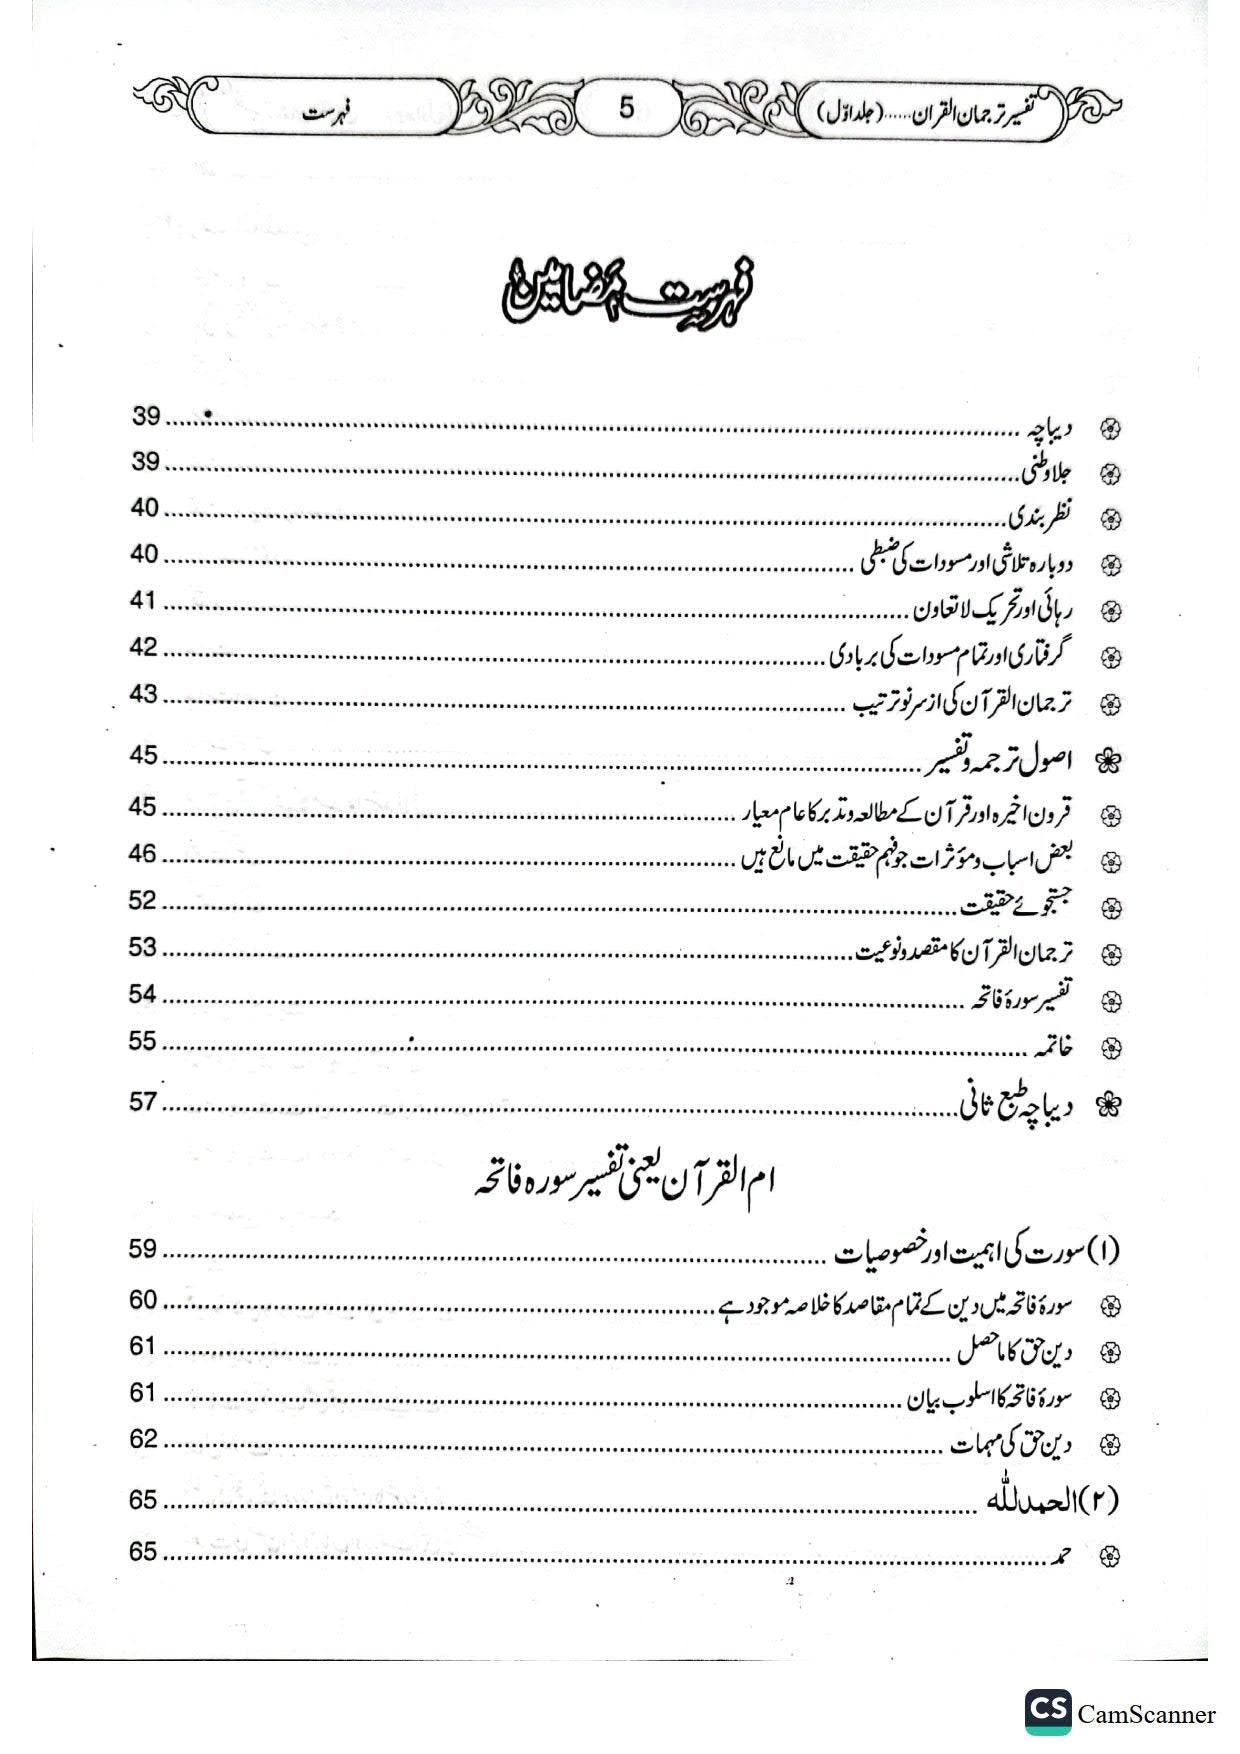 تفسیر ترجمان القران......(جلد اوّل) 5 فہرست
فہرست مضامین
دیباچہ 39
جلاوطنی 39
نظر بندی 40
دوبارہ تلاشی اور مسودات کی ضبطی 40
رہائی اور تحریک لا تعاون 41
گرفتاری اور تمام مسودات کی بربادی 42
ترجمان القرآن کی از سرنو ترتیب 43
اصول ترجمہ و تفسیر 45
قرون اخیرہ اور قرآن کے مطالعہ و تدبر کا عام معیار 45
بعض اسباب و مؤثرات جو فہم حقیقت میں مانع ہیں 46
جستجوئے حقیقت 52
ترجمان القرآن کا مقصد و نوعیت 53
تفسیر سورۂ فاتحہ 54
خاتمہ 55
دیباچہ طبع ثانی 57
ام القرآن یعنی تفسیر سورہ فاتحہ
(۱) سورت کی اہمیت اور خصوصیات 59
سورۂ فاتحہ میں دین کے تمام مقاصد کا خلاصہ موجود ہے 60
دین حق کا ماحصل 61
سورۂ فاتحہ کا اسلوب بیان 61
دین حق کی مہمات 62
(۲) الحمدللّٰه 65
حمد 65
CS CamScanner